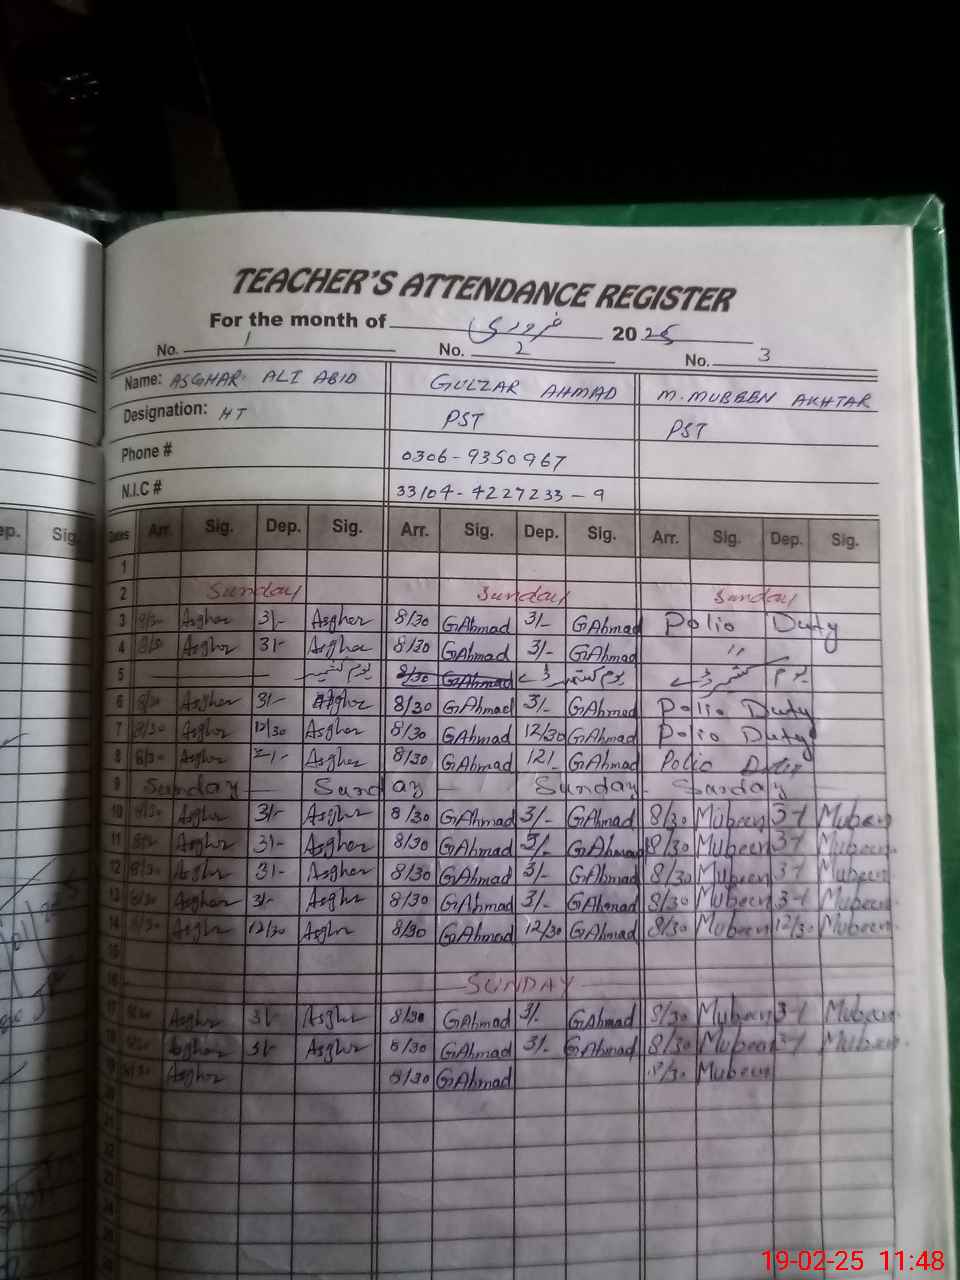 TEACHER'S ATTENDANCE REGISTER
For the month of فروری 2025
No. 1 No. 2 No. 3
Name: ASGHAR ALI ABID GULZAR AHMAD M. MUBEEN AKHTAR
Designation: HT PST PST
Phone # 0306-9350967
N.I.C # 33104-4227233-9
ep. Sig. Dates Arr. Sig. Dep. Sig. Arr. Sig. Dep. Sig. Arr. Sig. Dep. Sig.
1
2 Sunday Sunday Sunday
3 8/30 Asghar 3/- Asghar 8/30 GAhmad 3/- GAhmad Polio Duty
4 8/30 Asghar 3/- Asghar 8/30 GAhmad 3/- GAhmad "
5 یوم کشمیر 8/30 GAhmad یوم کشمیر ڈے یوم کشمیر ڈے
6 8/30 Asghar 3/- Asghar 8/30 GAhmad 3/- GAhmad Polio Duty
7 8/30 Asghar 12/30 Asghar 8/30 GAhmad 12/30 GAhmad Polio Duty
8 8/30 Asghar Asghar 8/30 GAhmad 12/- GAhmad Polio Duty
9 Sunday Sunday Sunday Sunday
10 8/30 Asghar 3/- Asghar 8/30 GAhmad 3/- GAhmad 8/30 Mubeen 3-1 Mubeen
11 8/30 Asghar 3/- Asghar 8/30 GAhmad 3/- GAhmad 8/30 Mubeen 3-1 Mubeen
12 8/30 Asghar 3/- Asghar 8/30 GAhmad 3/- GAhmad 8/30 Mubeen 3-1 Mubeen
13 8/30 Asghar 3/- Asghar 8/30 GAhmad 3/- GAhmad 8/30 Mubeen 3-1 Mubeen
14 8/30 Asghar 12/30 Asghar 8/30 GAhmad 12/30 GAhmad 8/30 Mubeen 12/30 Mubeen
15
16 SUNDAY
17 8/30 Asghar 3/- Asghar 8/30 GAhmad 3/- GAhmad 8/30 Mubeen 3-1 Mubeen
18 8/30 Asghar 3/- Asghar 8/30 GAhmad 3/- GAhmad 8/30 Mubeen 3-1 Mubeen
19 8/30 Asghar 8/30 GAhmad 8/30 Mubeen
20
21
22
23
24
25
26
19-02-25 11:48